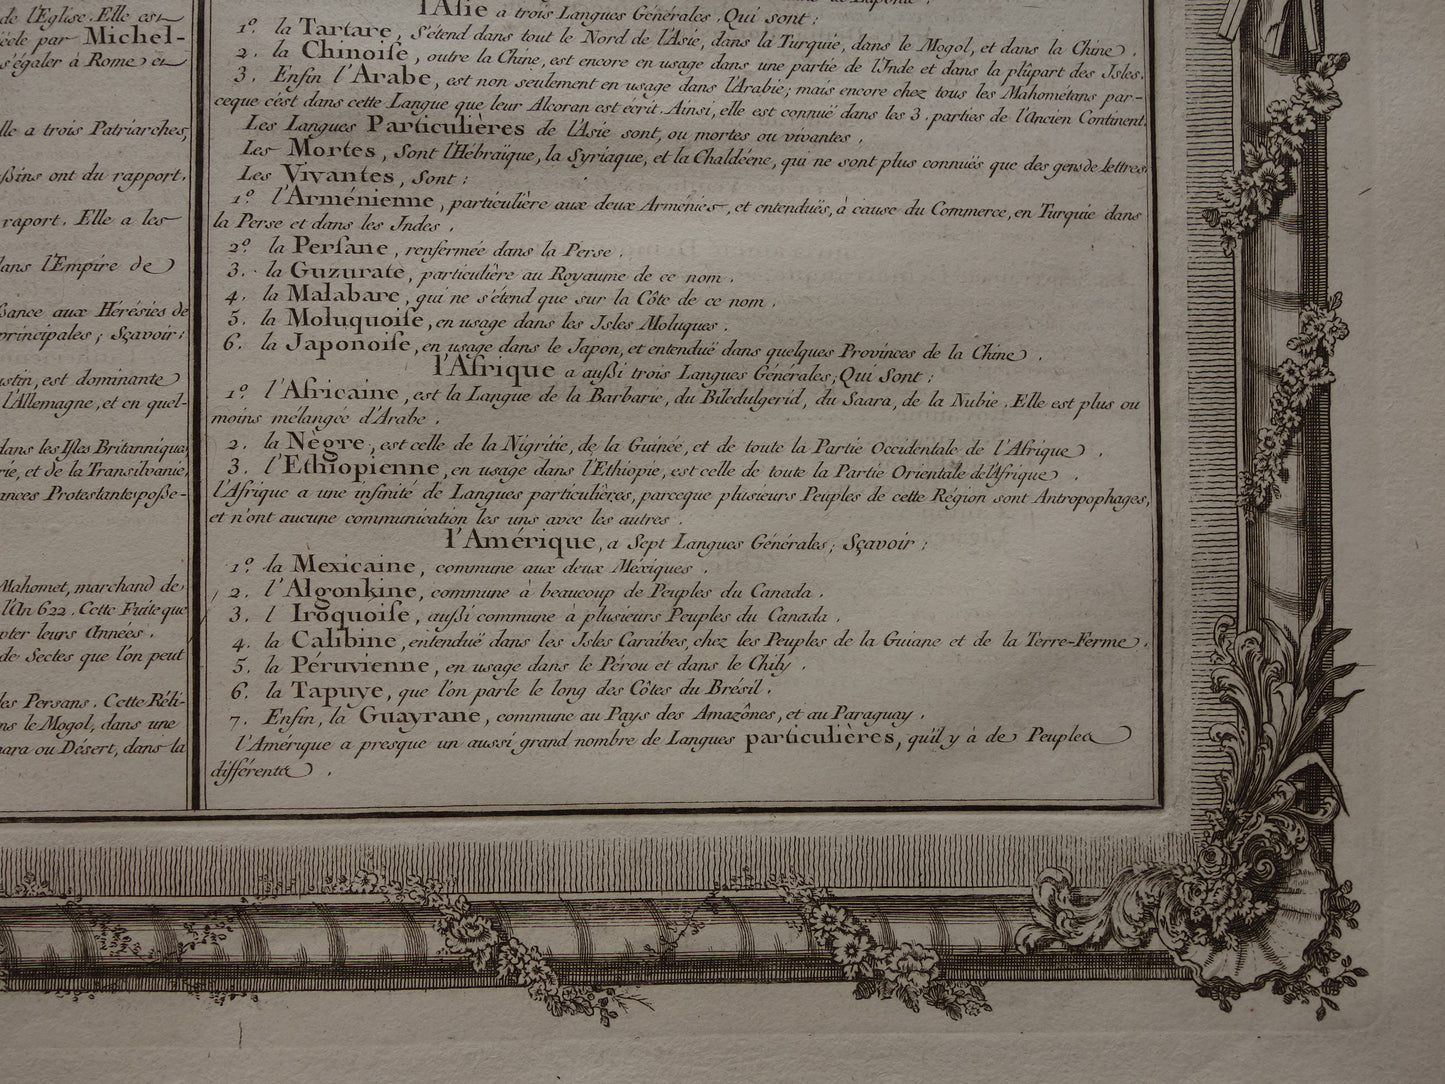 de l'Eglise. Elle est
siécle par Michel-
s'égaler à Rome et
Elle a trois Patriarches,
ont du rapport.
raport. Elle a les
dans l'Empire de
aux Hérésies de
principales; Sçavoir:
est dominante
l'Allemagne, et en quel-
dans les Isles Britanniques
et de la Transilvanie,
Protestantes poße-
Mahomet, marchand de
l'An 622. Cette Fuite que
leurs Années.
de Sectes que l'on peut
des Persans. Cette Réli-
le Mogol, dans une
ou Désert, dans la
l'Asie a trois Langues Générales. Qui sont:
1º. la Tartare, s'étend dans tout le Nord de l'Asie, dans la Turquie, dans le Mogol, et dans la Chine.
2. la Chinoise, outre la Chine, est encore en usage dans une partie de l'Inde et dans la plûpart des Isles.
3. Enfin l'Arabe, est non seulement en usage dans l'Arabie; mais encore chez tous les Mahometans par-
ceque c'est dans cette Langue que leur Alcoran est écrit. Ainsi, elle est connuë dans les 3. parties de l'ancien Continent.
Les Langues Particulières de l'Asie sont, ou mortes ou vivantes.
Les Mortes, Sont l'Hébraïque, la Syriaque, et la Chaldéene, qui ne sont plus connuës que des gens de lettres.
Les Vivantes, Sont:
1º. l'Arménienne, particulière aux deux Arménies, et entenduës, à cause du Commerce, en Turquie dans
la Perse et dans les Indes.
2º. la Persane, renfermée dans la Perse.
3. la Guzurate, particulière au Royaume de ce nom.
4. la Malabare, qui ne s'étend que sur la Côte de ce nom.
5. la Moluquoise, en usage dans les Isles Moluques.
6. la Japonoise, en usage dans le Japon, et entenduë dans quelques Provinces de la Chine.
l'Afrique a außi trois Langues Générales; Qui Sont:
1º. l'Africaine, est la Langue de la Barbarie, du Biledulgerid, du Saara, de la Nubie. Elle est plus ou
moins mélangée d'Arabe.
2. la Nègre, est celle de la Nigritie, de la Guinée, et de toute la Partie Occidentale de l'Afrique.
3. l'Ethiopienne, en usage dans l'Ethiopie, est celle de toute la Partie Orientale de l'Afrique.
l'Afrique a une infinité de Langues particulières, parceque plusieurs Peuples de cette Région sont Antropophages,
et n'ont aucune communication les uns avec les autres.
l'Amérique, a Sept Langues Générales; Sçavoir:
1º. la Mexicaine, commune aux deux Méxiques.
2. l'Algonkine, commune à beaucoup de Peuples du Canada.
3. l Iroquoise, außi commune à plusieurs Peuples du Canada.
4. la Calibine, entenduë dans les Isles Caraibes, chez les Peuples de la Guiane et de la Terre-Ferme.
5. la Péruvienne, en usage dans le Pérou et dans le Chily.
6. la Tapuye, que l'on parle le long des Côtes du Brésil.
7. Enfin, la Guayrane, commune au Pays des Amazônes, et au Paraguay.
l'Amérique a presque un aussi grand nombre de Langues particulières, qu'il y à de Peuples
différents.